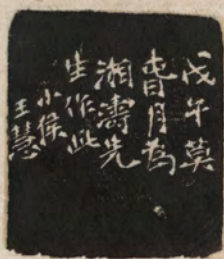 戊午莫
春月為
湘濤先
生作此
小侯
王慧